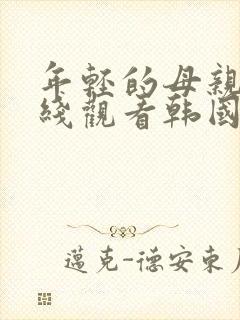 年輕的母親
綫觀看韓國
邁克-德安東